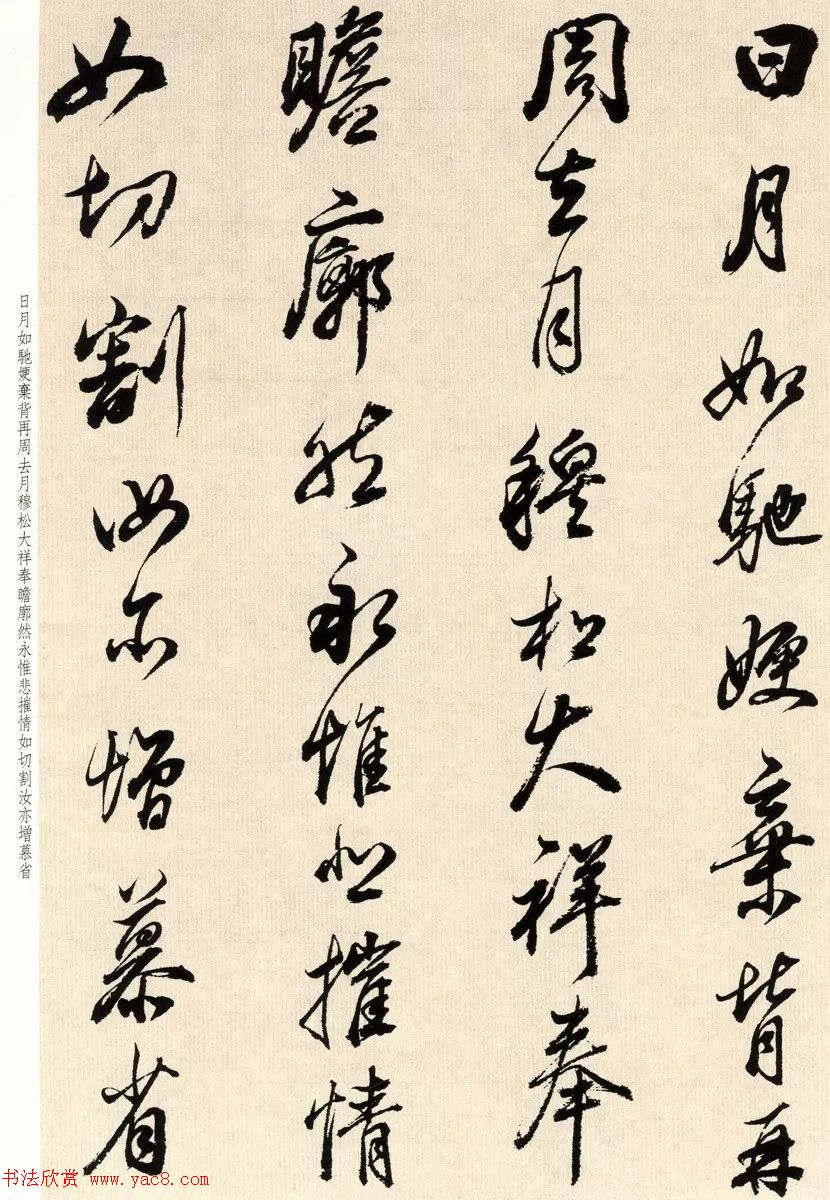 日月如馳嫂棄背再
周去月穆松大祥奉
瞻廓然永惟悲摧情
如切割汝亦增慕省
日月如馳嫂棄背再周去月穆松大祥奉瞻廓然永惟悲摧情如切割汝亦增慕省
书法欣赏 www.yac8.com